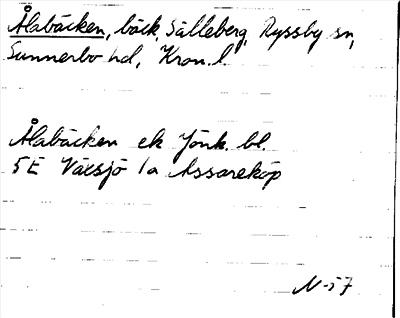 Ålabäcken, bäck, Sälleberg, Ryssby sn,
Sunnerbo hd, Kron. l.
Ålabäcken ek Jönk. bl.
5E Växsjö 1a Assareköp
N-57